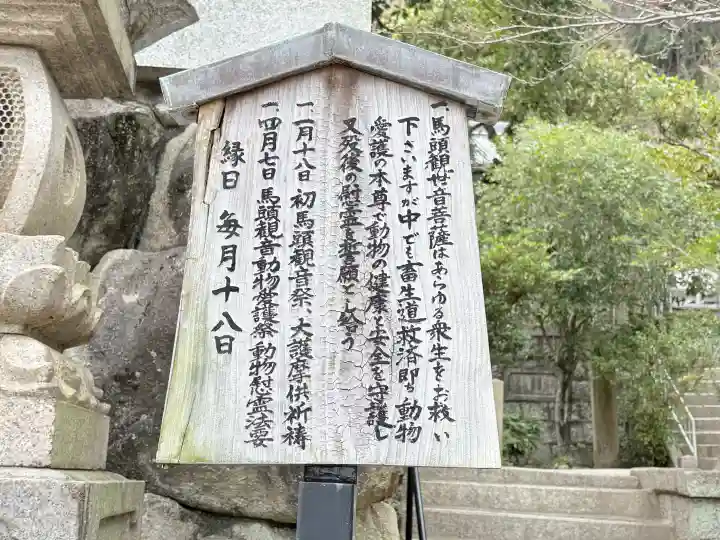 一、馬頭観世音菩薩はあらゆる衆生をお救い
下さいますが中でも畜生道救済即ち動物
愛護の本尊で動物の健康と安全を守護し
又死後の慰霊を誓願と
一、二月十八日 初馬頭観音祭、大護摩供祈祷
一、四月七日 馬頭観音動物愛護祭 動物慰霊法要
縁日 毎月十八日